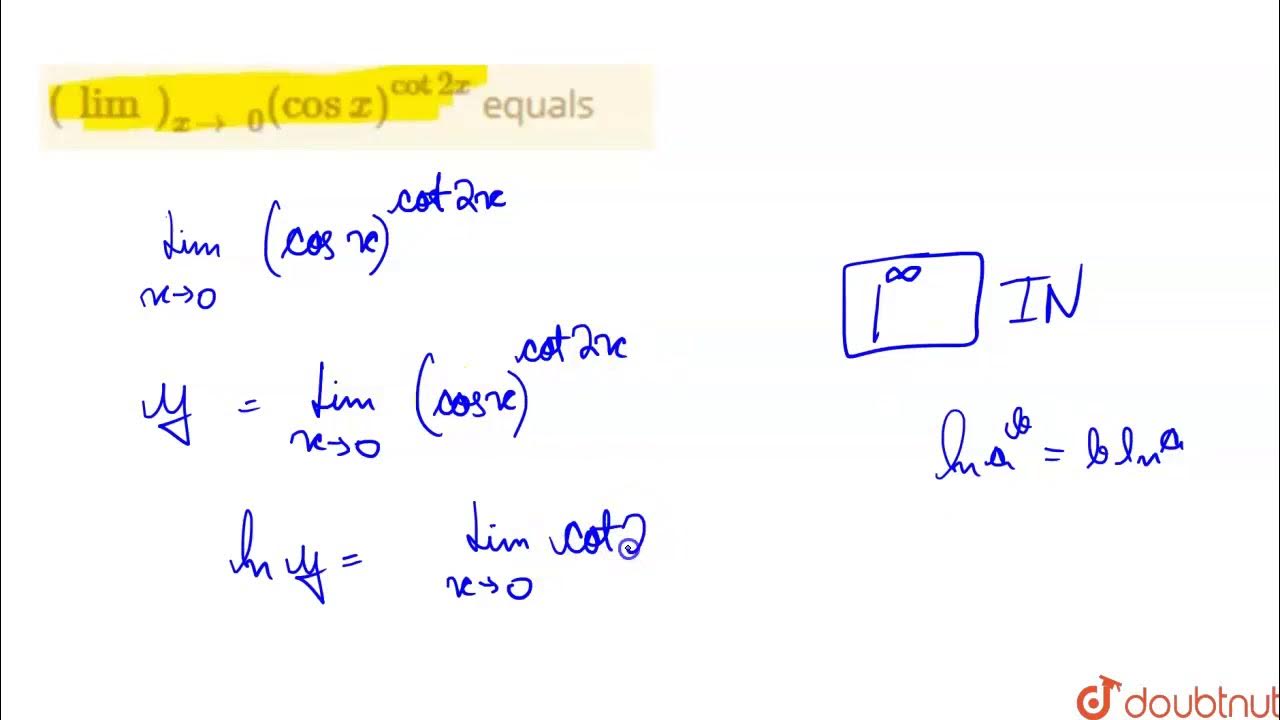 ( lim )ₓ→ ₀(cos x)^cot 2x equals
Lim x→0 (cos x)^cot 2x
1^∞ IN
y = Lim x→0 (cos x)^cot 2x
ln a^b = b ln a
ln y = Lim x→0 cot 2
doubtnut